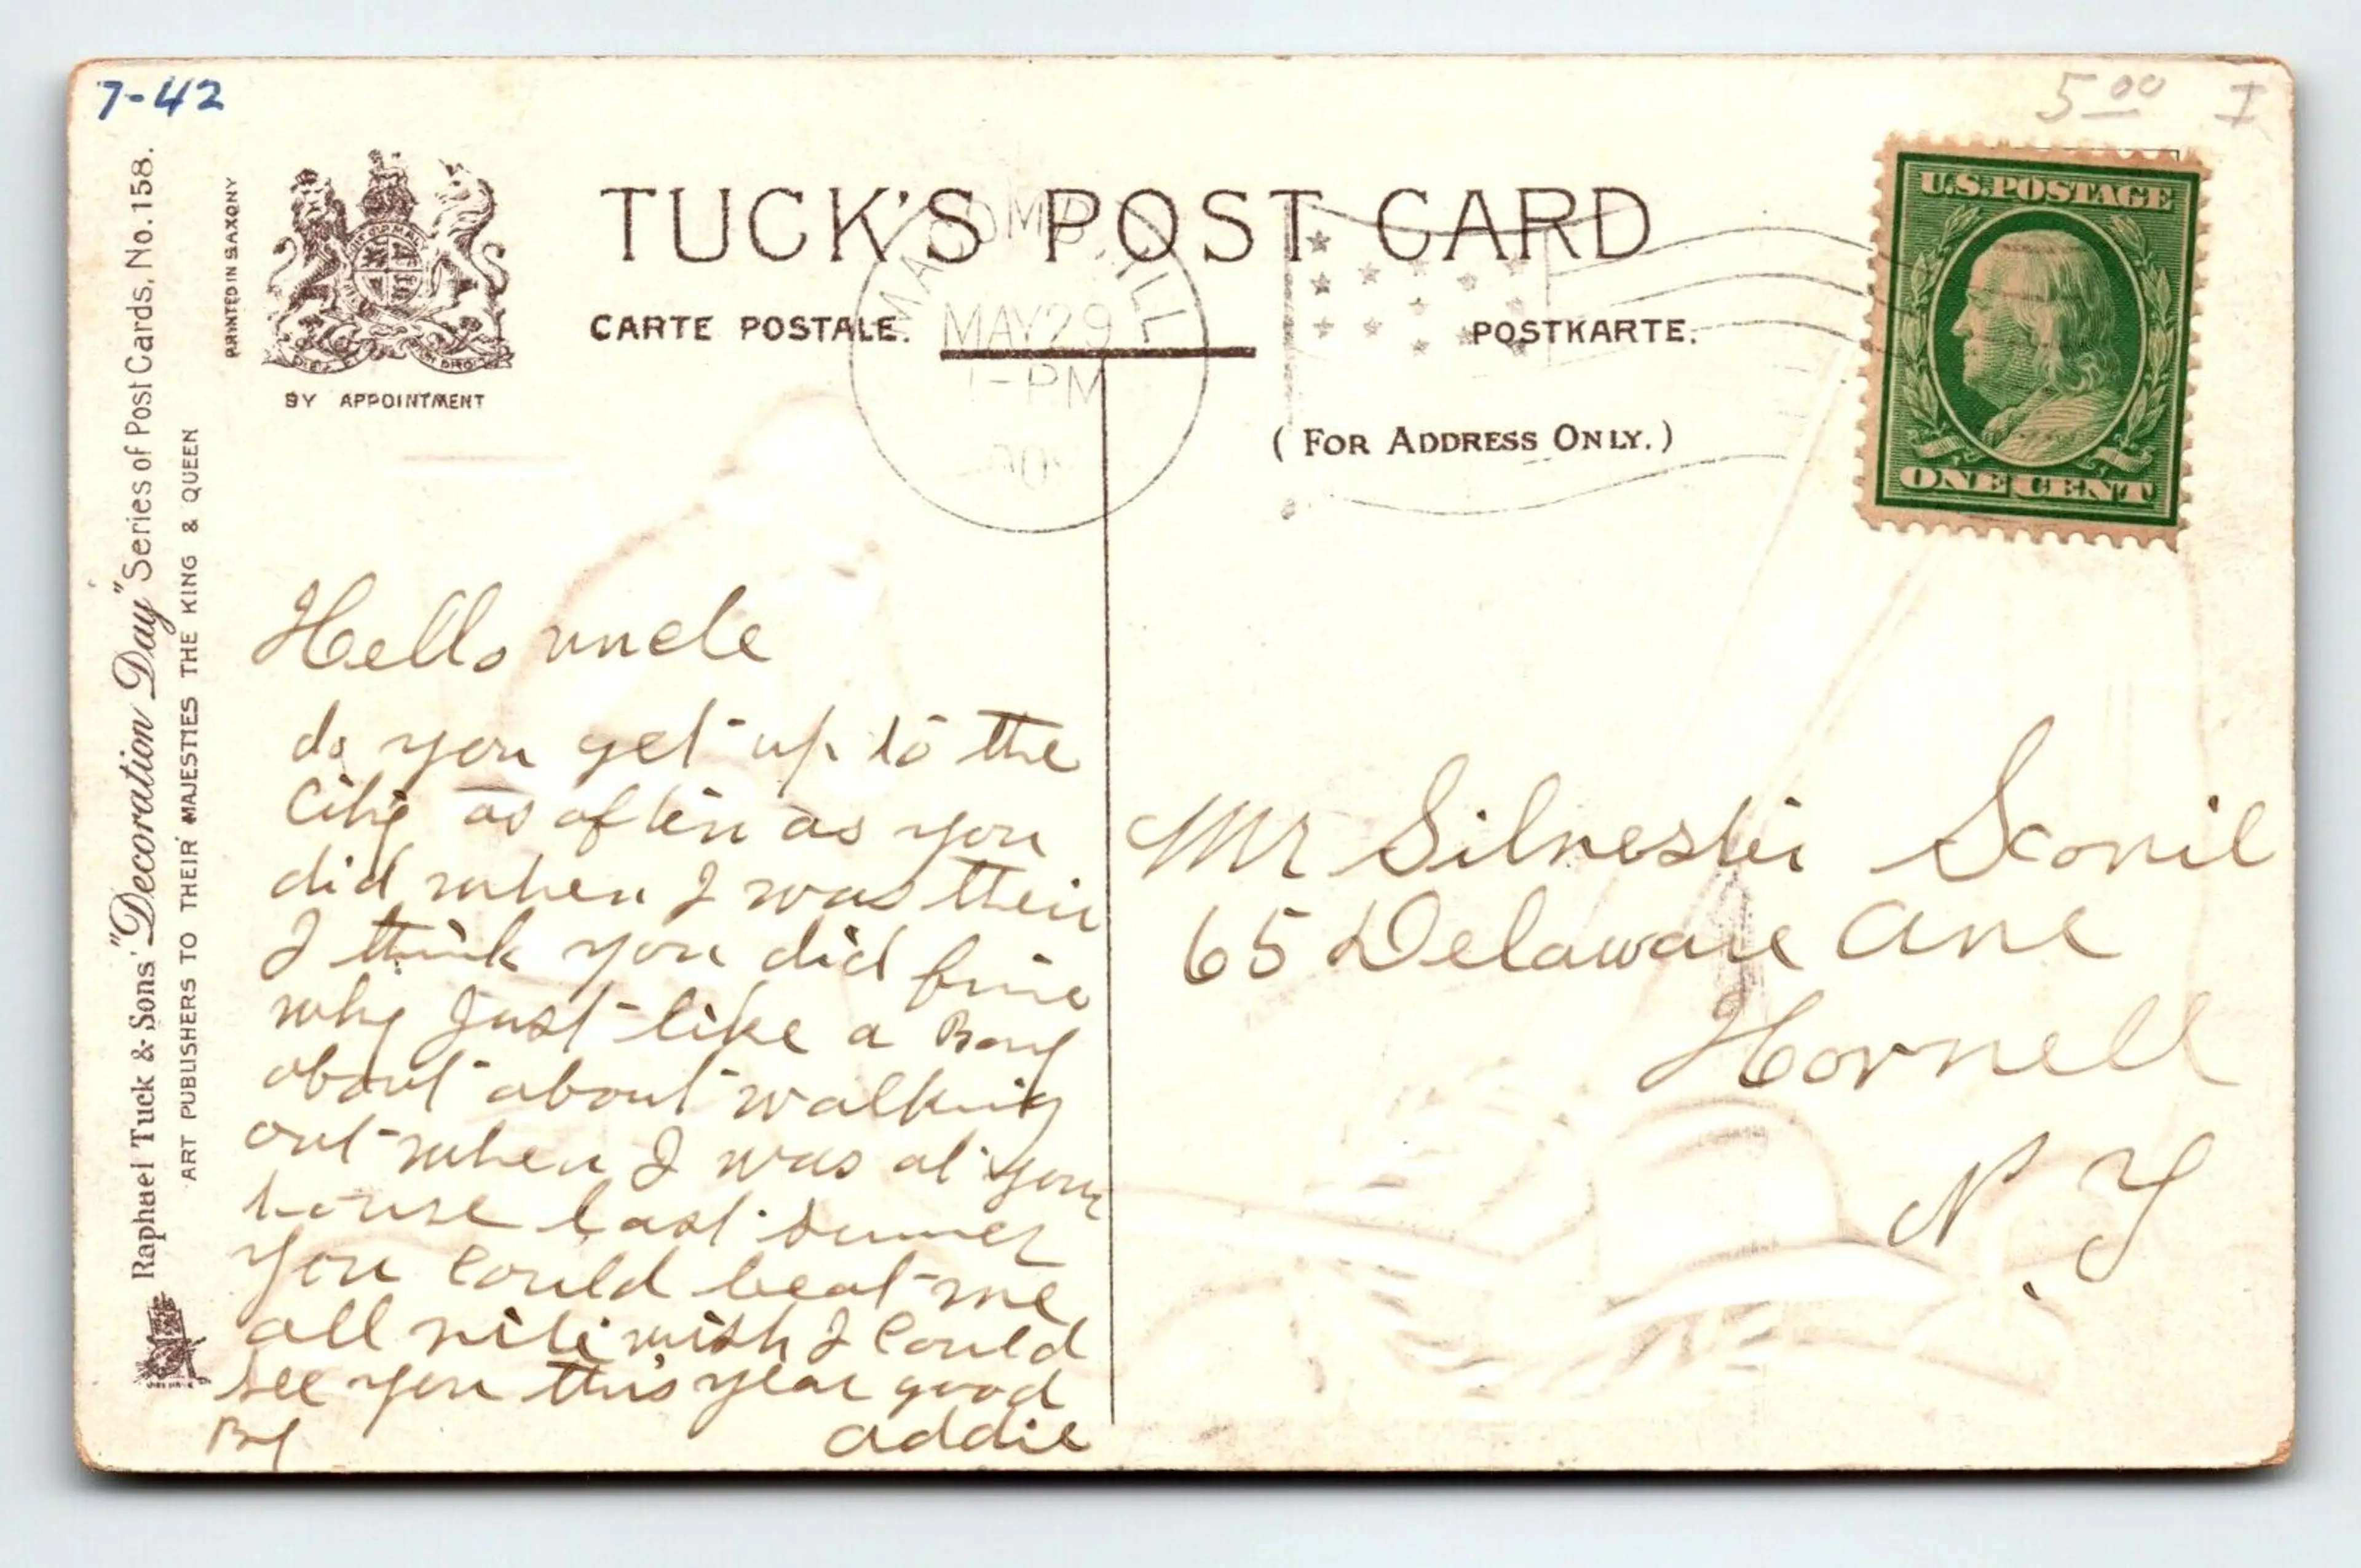 7-42
5.00 I
Raphael Tuck & Sons' "Decoration Day" Series of Post Cards, No. 158.
ART PUBLISHERS TO THEIR MAJESTIES THE KING & QUEEN
PRINTED IN SAXONY
BY APPOINTMENT
TUCK'S POST CARD
CARTE POSTALE.
POSTKARTE.
(FOR ADDRESS ONLY.)
MACOMB, ILL
MAY 29
1-PM
U.S. POSTAGE
ONE CENT
Hello uncle
do you get up to the
City as often as you
did when I was their
I think you did fine
why Just like a Boy
about about walking
out when I was at your
house last summer
you Could beat me
all rite wish I Could
see you this year good
By addie
Mr Silvester Scovil
65 Delaware Ave
Hornell
N. Y